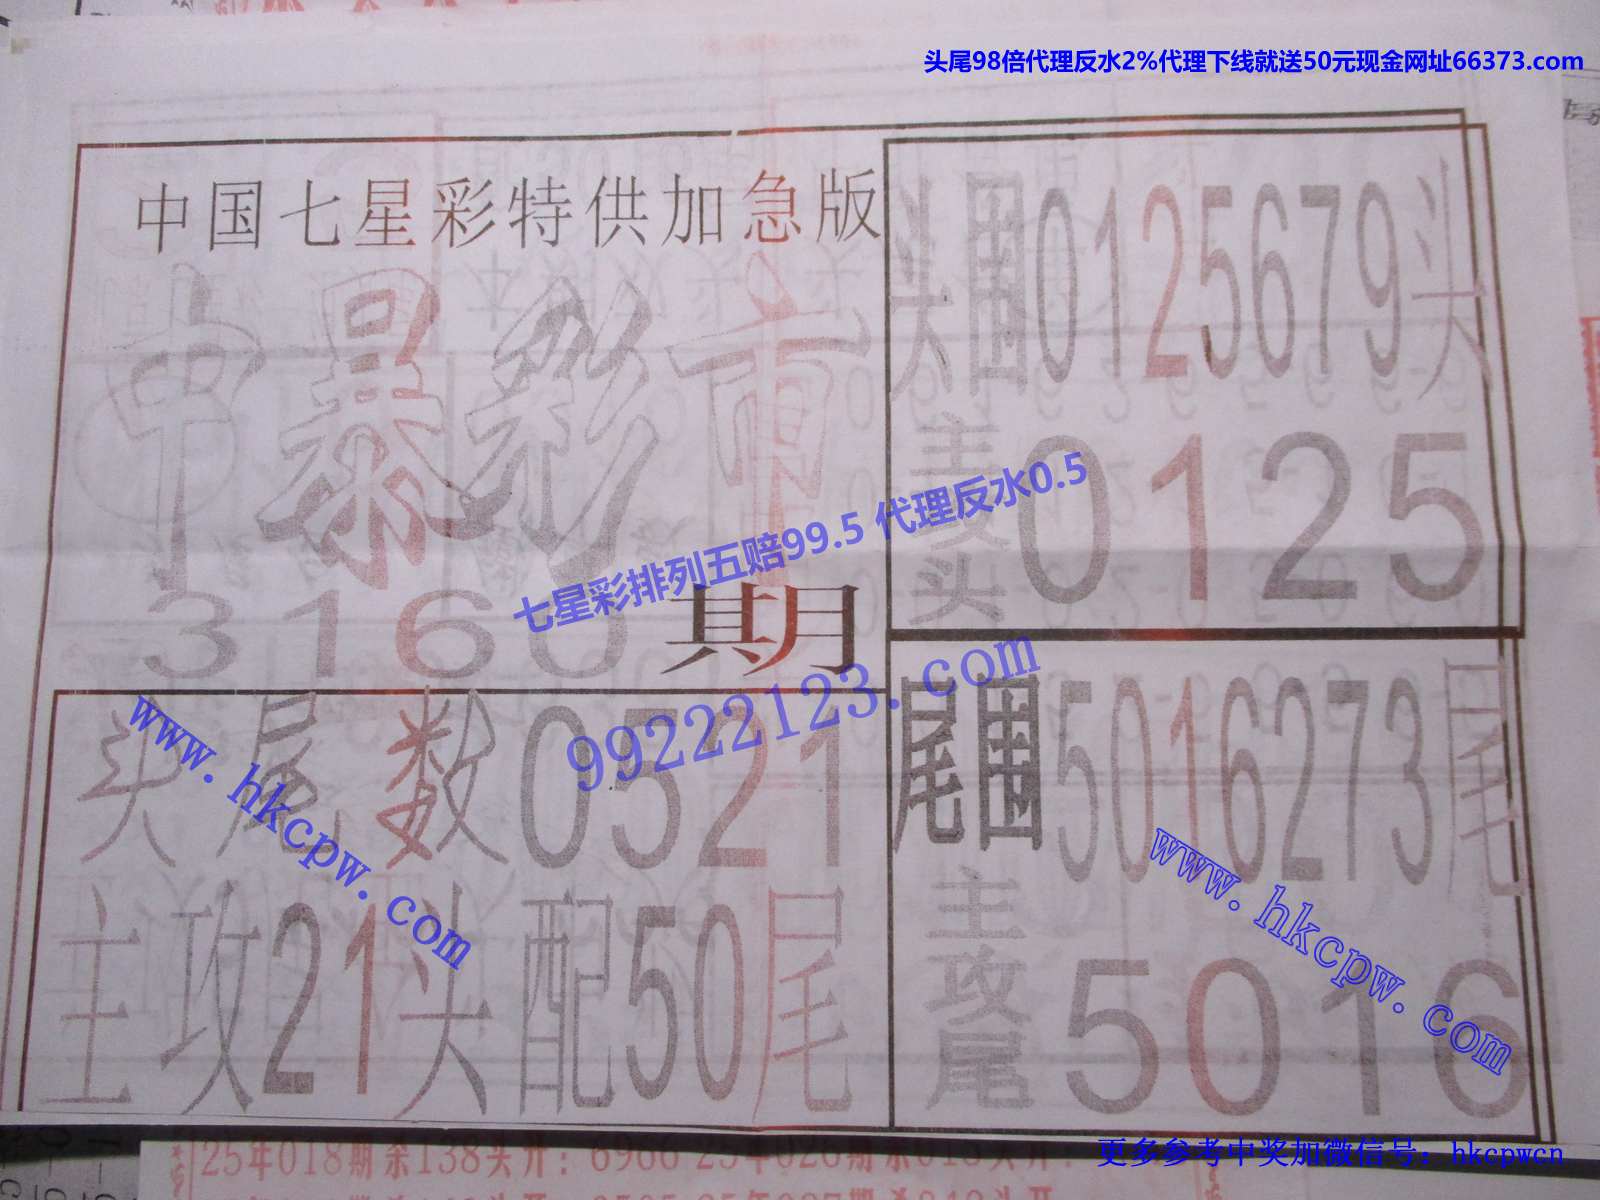 头尾98倍代理反水2%代理下线就送50元现金网址66373.com
中国七星彩特供加急版
中暴彩市
3160期
头围0125679头
主攻头0125
七星彩排列五赔99.5 代理反水0.5
99222123.com
头尾数0521
主攻21头配50尾
尾围5016273尾
主攻尾5016
www.hkcpw.com
www.hkcpw.com
更多参考中奖加微信号：hkcpwcn
25年018期杀138头开：6966 25年026期杀013头开